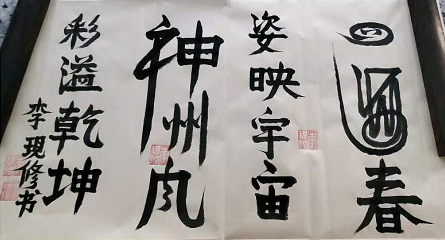 春
姿映宇宙
神州风
彩溢乾坤
李现修书